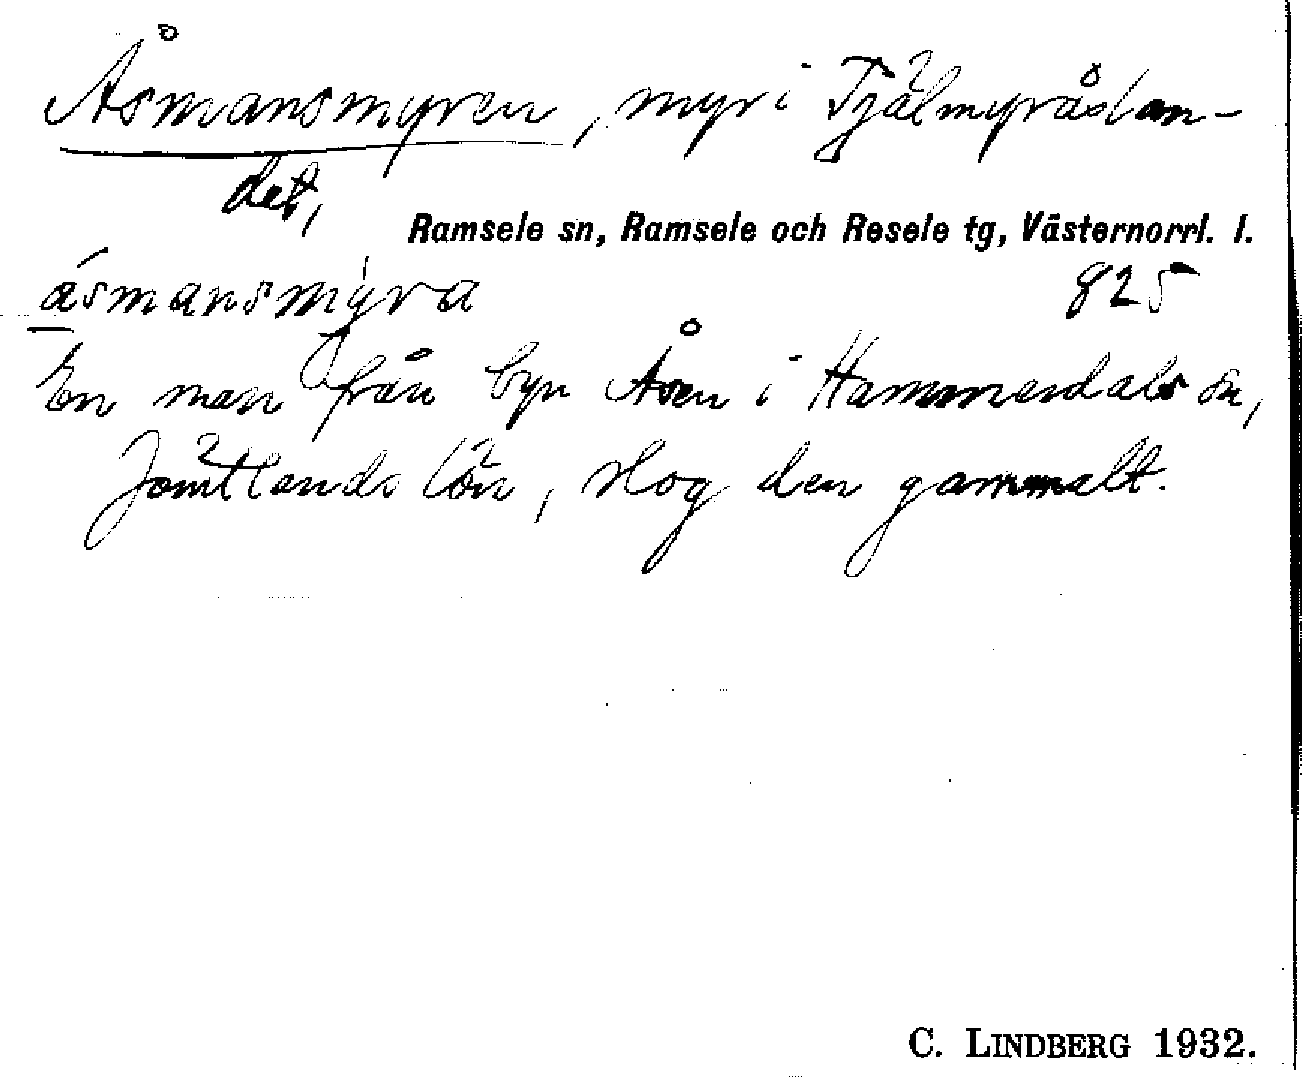 Åsmansmyren, myr i Tjälmyråslan-
det,
Ramsele sn, Ramsele och Resele tg, Västernorrl. l.
åsmansmýra 825
En man från byn Åsen i Hammerdals sn,
Jämtlands län, slog den gammalt.
C. LINDBERG 1932.